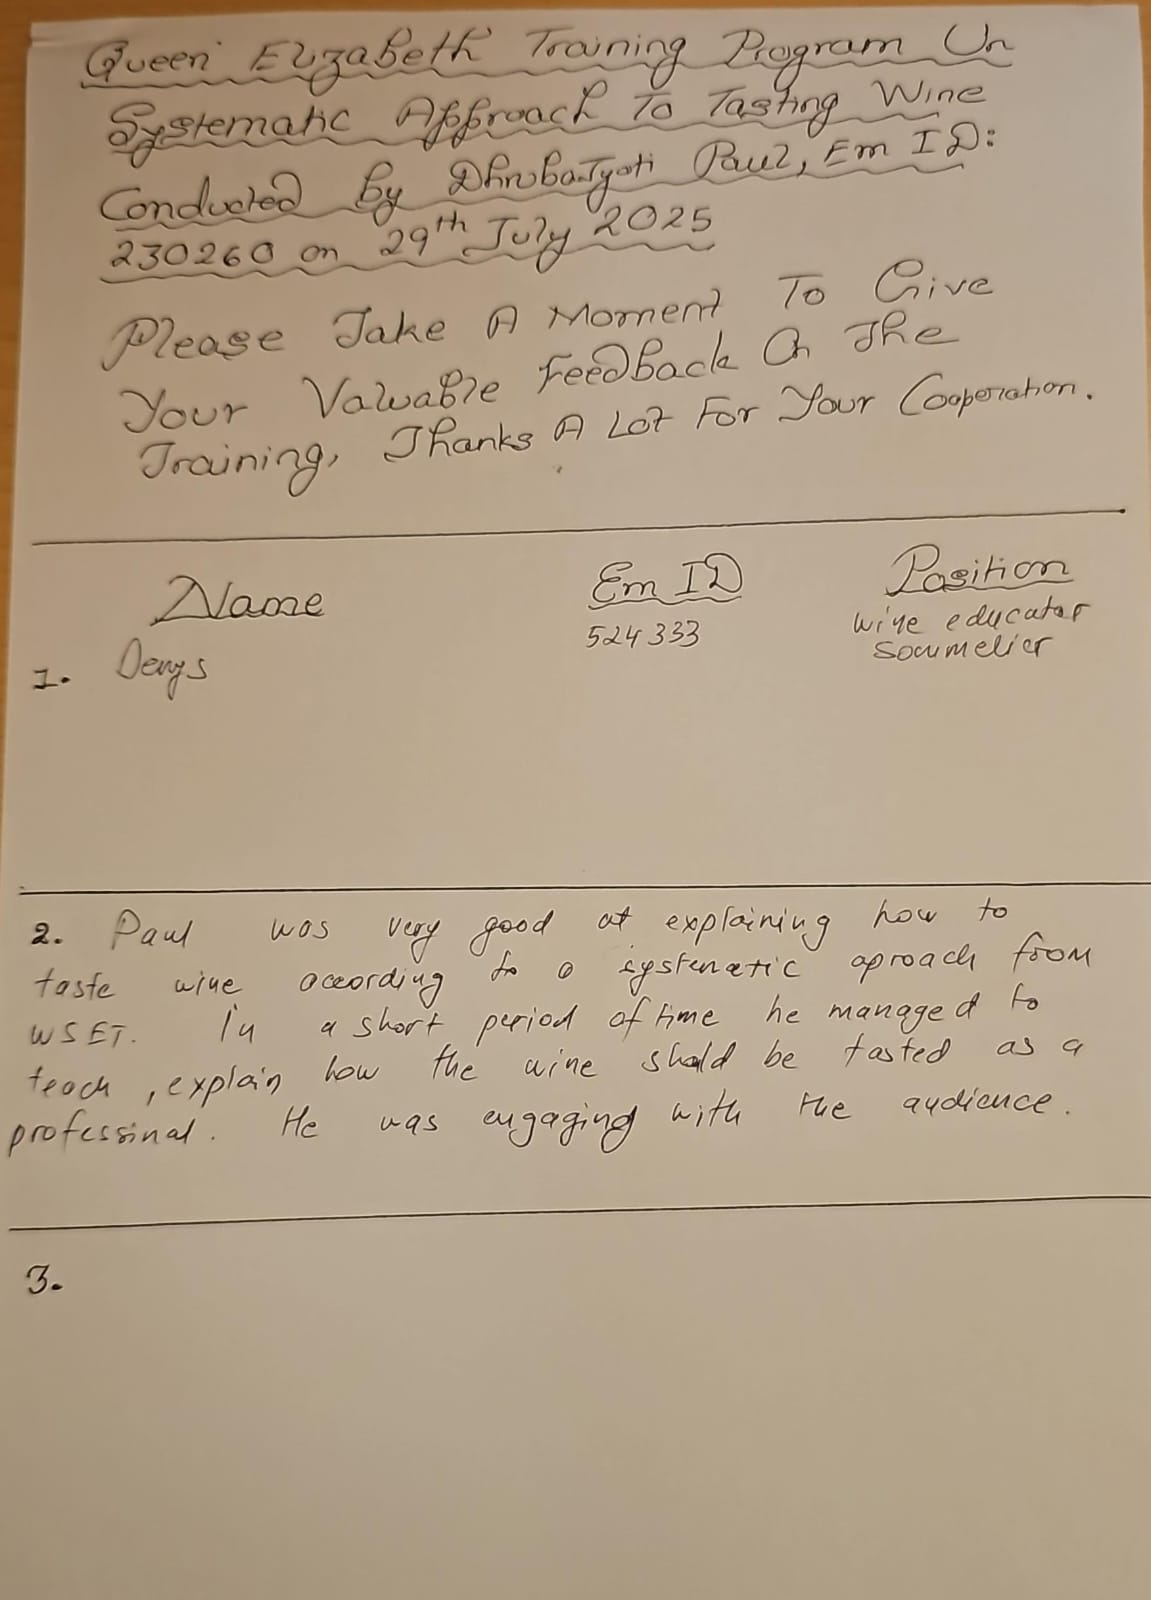 Queen Elizabeth Training Program On
Systematic Approach To Tasting Wine
Conducted By Dhrubajyoti Paul, Em ID:
230260 on 29th July 2025
Please Take A Moment To Give
Your Valuable Feedback On The
Training, Thanks A Lot For Your Cooperation.
Name Em ID Position
1. Denys 524333 wine educator
Sommelier
2. Paul was very good at explaining how to
taste wine according to a systematic aproach from
WSET. In a short period of time he managed to
teach, explain how the wine shold be tasted as a
professinal. He was engaging with the audience.
3.